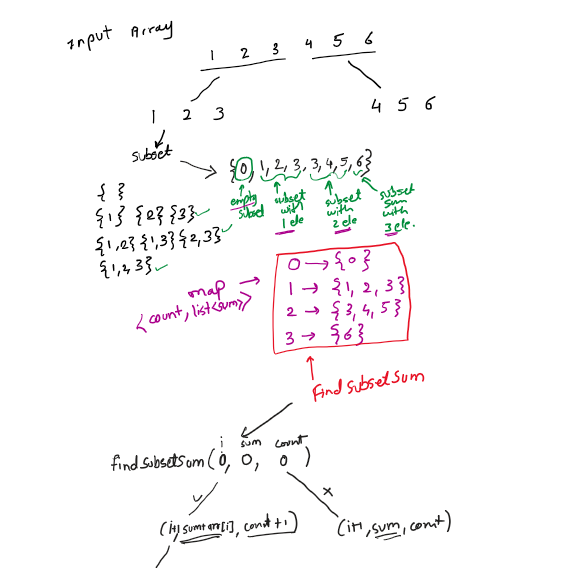 Input Array
1 2 3 4 5 6
1 2 3
4 5 6
subset
{0, 1, 2, 3, 3, 4, 5, 6}
empty subset
subset with 1 ele
subset with 2 ele
subset sum with 3 ele.
{ }
{1} {2} {3}
{1,2} {1,3} {2,3}
{1,2,3}
map
<count, list<sum>>
0 → {0}
1 → {1, 2, 3}
2 → {3, 4, 5}
3 → {6}
Find subset sum
i sum count
findsubsetSum(0, 0, 0)
(i+1, sum+arr[i], count+1)
(i+1, sum, count)